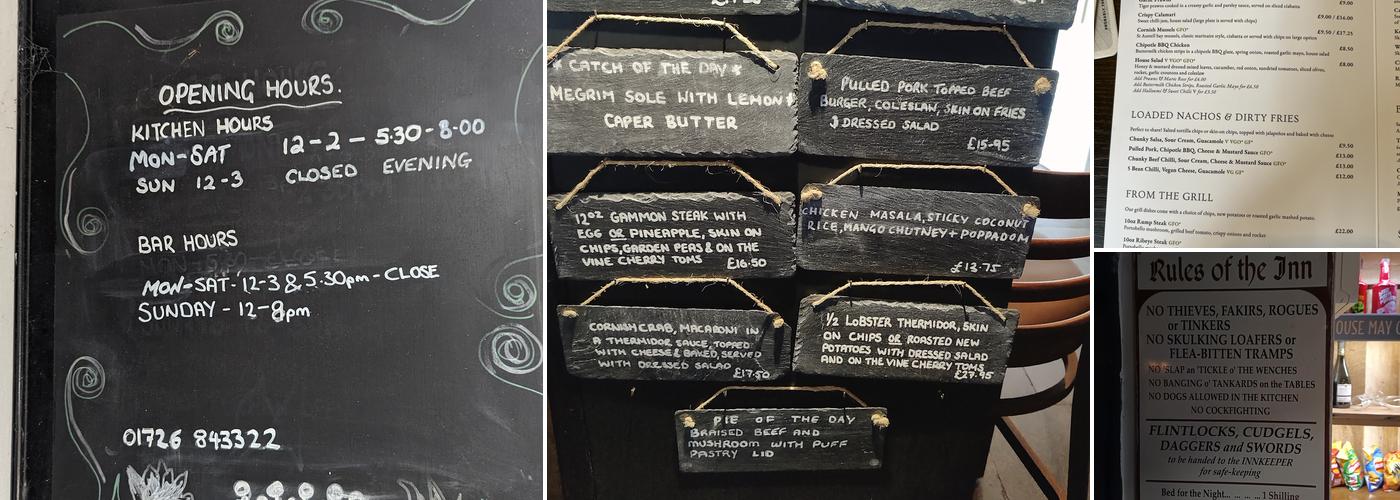 OPENING HOURS.
KITCHEN HOURS
MON-SAT 12-2 - 5.30-8.00
SUN 12-3 CLOSED EVENING
BAR HOURS
MON-SAT-12-3 & 5.30pm-CLOSE
SUNDAY - 12-8pm
01726 843322
* CATCH OF THE DAY *
MEGRIM SOLE WITH LEMON &
CAPER BUTTER
PULLED PORK TOPPED BEEF
BURGER, COLESLAW, SKIN ON FRIES
& DRESSED SALAD
£15-95
12oz GAMMON STEAK WITH
EGG OR PINEAPPLE, SKIN ON
CHIPS, GARDEN PEAS & ON THE
VINE CHERRY TOMS £16.50
CHICKEN MASALA, STICKY COCONUT
RICE, MANGO CHUTNEY + POPPADOM
£13.75
CORNISH CRAB, MACARONI IN
A THERMIDOR SAUCE, TOPPED
WITH CHEESE & BAKED, SERVED
WITH DRESSED SALAD £17.50
1/2 LOBSTER THERMIDOR, SKIN
ON CHIPS OR ROASTED NEW
POTATOES WITH DRESSED SALAD
AND ON THE VINE CHERRY TOMS
£27.95
PIE OF THE DAY
BRAISED BEEF AND
MUSHROOM WITH PUFF
PASTRY LID
Tiger prawns cooked in a creamy garlic and parsley sauce, served on sliced ciabatta £9.00
Crispy Calamari
Sweet chilli jam, house salad (large plate is served with chips) £9.00 / £16.00
Cornish Mussels GFO*
St Austell bay mussels, classic marinière style, ciabatta or served with chips on large option £9.50 / £17.25
Chipotle BBQ Chicken
Buttermilk chicken strips in a chipotle BBQ glaze, spring onion, roasted garlic mayo, house salad £8.50
House Salad V VGO* GFO*
Honey & mustard dressed mixed leaves, cucumber, red onion, sundried tomatoes, sliced olives, £8.00
rocket, garlic croutons and coleslaw
Add Prawns & Marie Rose for £4.00
Add Buttermilk Chicken Strips, Roasted Garlic Mayo for £6.50
Add Halloumi & Sweet Chilli V for £3.50
LOADED NACHOS & DIRTY FRIES
Perfect to share! Salted tortilla chips or skin-on chips, topped with jalapeños and baked with cheese
Chunky Salsa, Sour Cream, Guacamole V VGO* GF* £9.50
Pulled Pork, Chipotle BBQ, Cheese & Mustard Sauce GFO* £13.00
Chunky Beef Chilli, Sour Cream, Cheese & Mustard Sauce GFO* £13.00
5 Bean Chilli, Vegan Cheese, Guacamole VG GF* £12.00
FROM THE GRILL
Our grill dishes come with a choice of chips, new potatoes or roasted garlic mashed potato.
10oz Rump Steak GFO*
Portobello mushroom, grilled beef tomato, crispy onions and rocket £22.00
10oz Ribeye Steak GFO*
Rules of the Inn
NO THIEVES, FAKIRS, ROGUES
or TINKERS
NO SKULKING LOAFERS or
FLEA-BITTEN TRAMPS
NO 'SLAP an 'TICKLE o' THE WENCHES
NO BANGING o' TANKARDS on the TABLES
NO DOGS ALLOWED IN THE KITCHEN
NO COCKFIGHTING
FLINTLOCKS, CUDGELS,
DAGGERS and SWORDS
to be handed to the INNKEEPER
for safe-keeping
Bed for the Night... ... ... ..1 Shilling
OUSE MAY